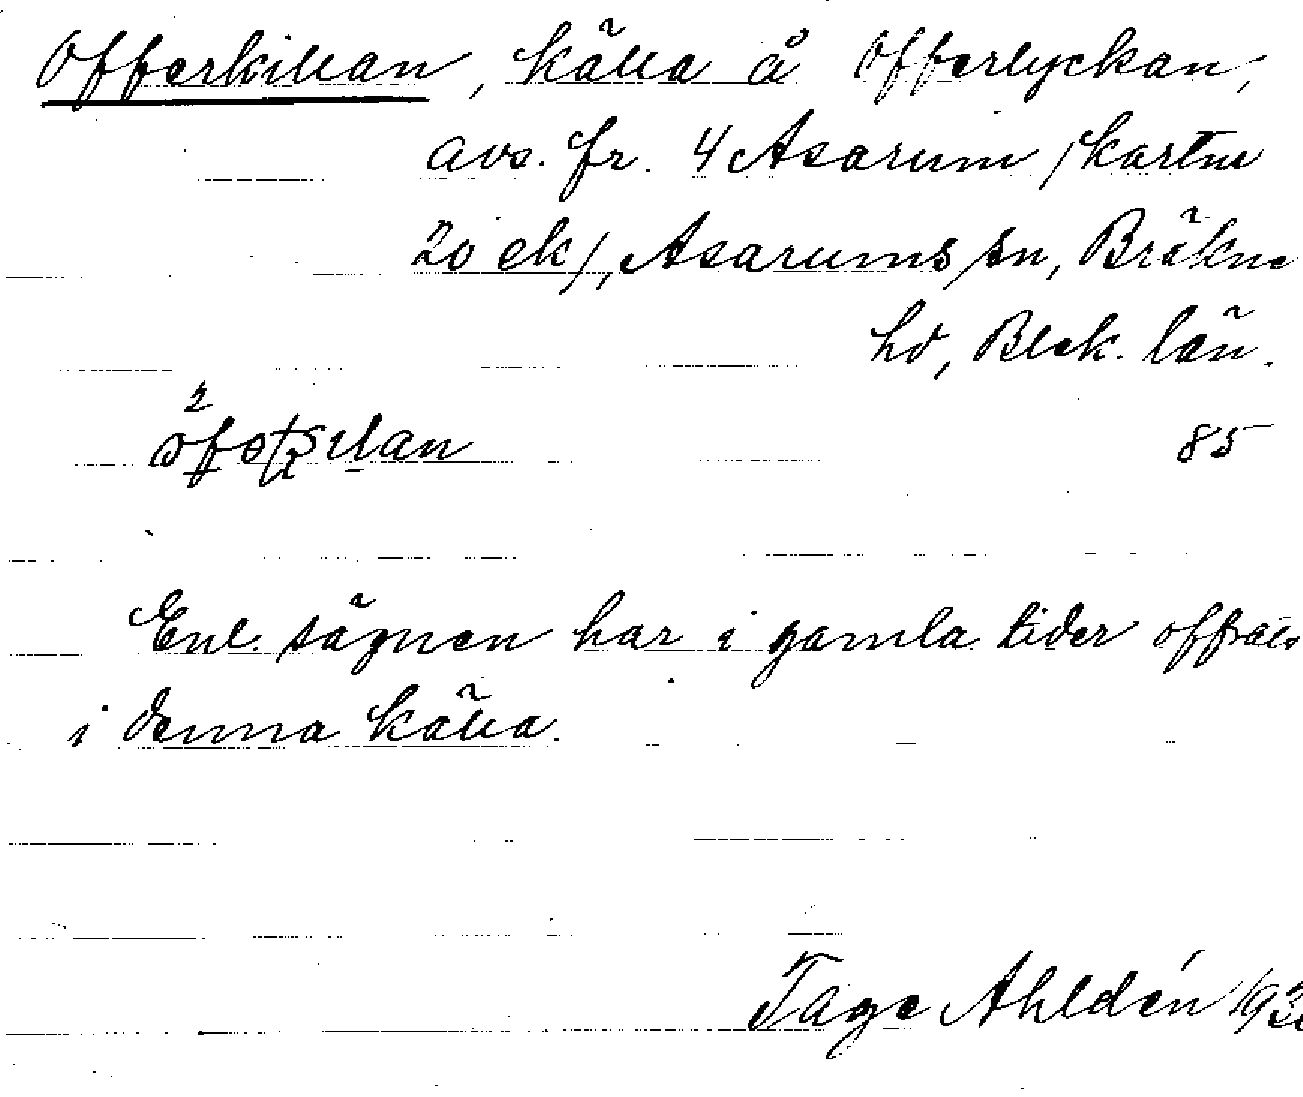 Offerkillan, källa å Offerlyckan,
avs. fr. 4 Asarum /kartnr
20 ek/, Asarums sn, Bräkne
hd, Blek. län.
85
Enl. sägnen har i gamla tider offrats
i denna källa.
Tage Ahldén